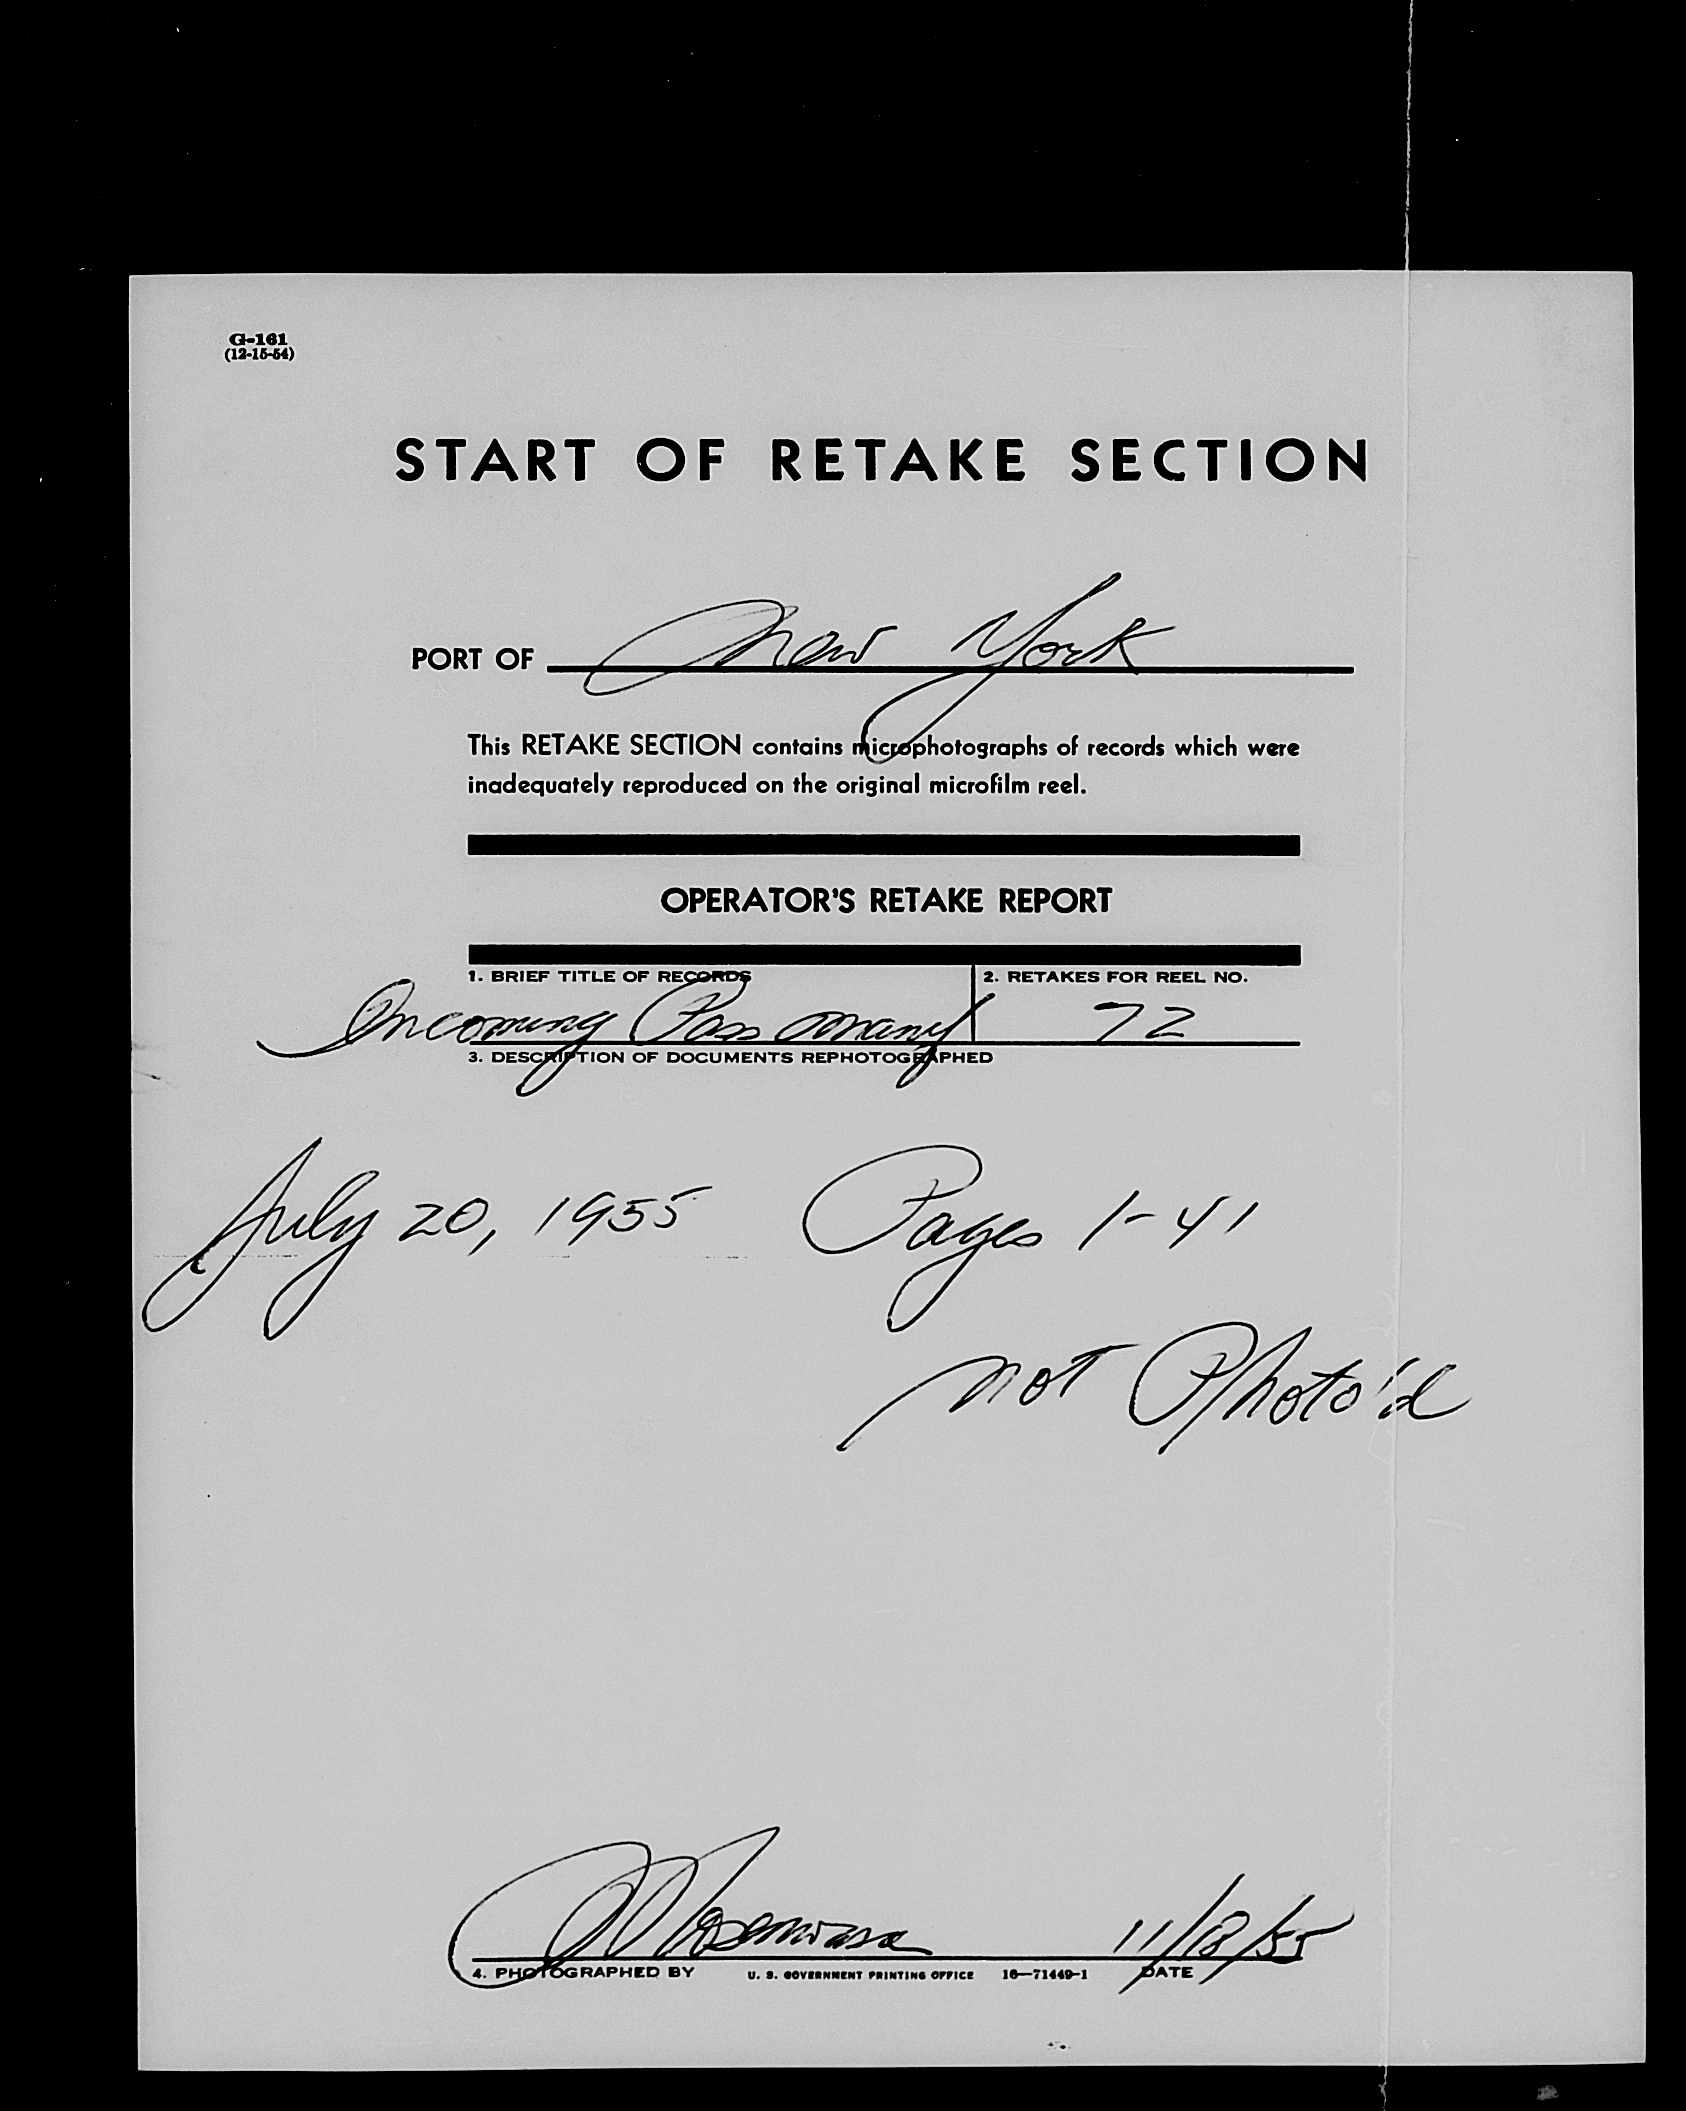 G-161
(12-15-54)
START OF RETAKE SECTION
PORT OF New York
This RETAKE SECTION contains microphotographs of records which were
inadequately reproduced on the original microfilm reel.
OPERATOR'S RETAKE REPORT
1. BRIEF TITLE OF RECORDS 2. RETAKES FOR REEL NO.
Incoming Pass 72
3. DESCRIPTION OF DOCUMENTS REPHOTOGRAPHED
July 20, 1955 Pages 1-41
not Photo'd
11/8/55
4. PHOTOGRAPHED BY U. S. GOVERNMENT PRINTING OFFICE 16—71449-1 DATE